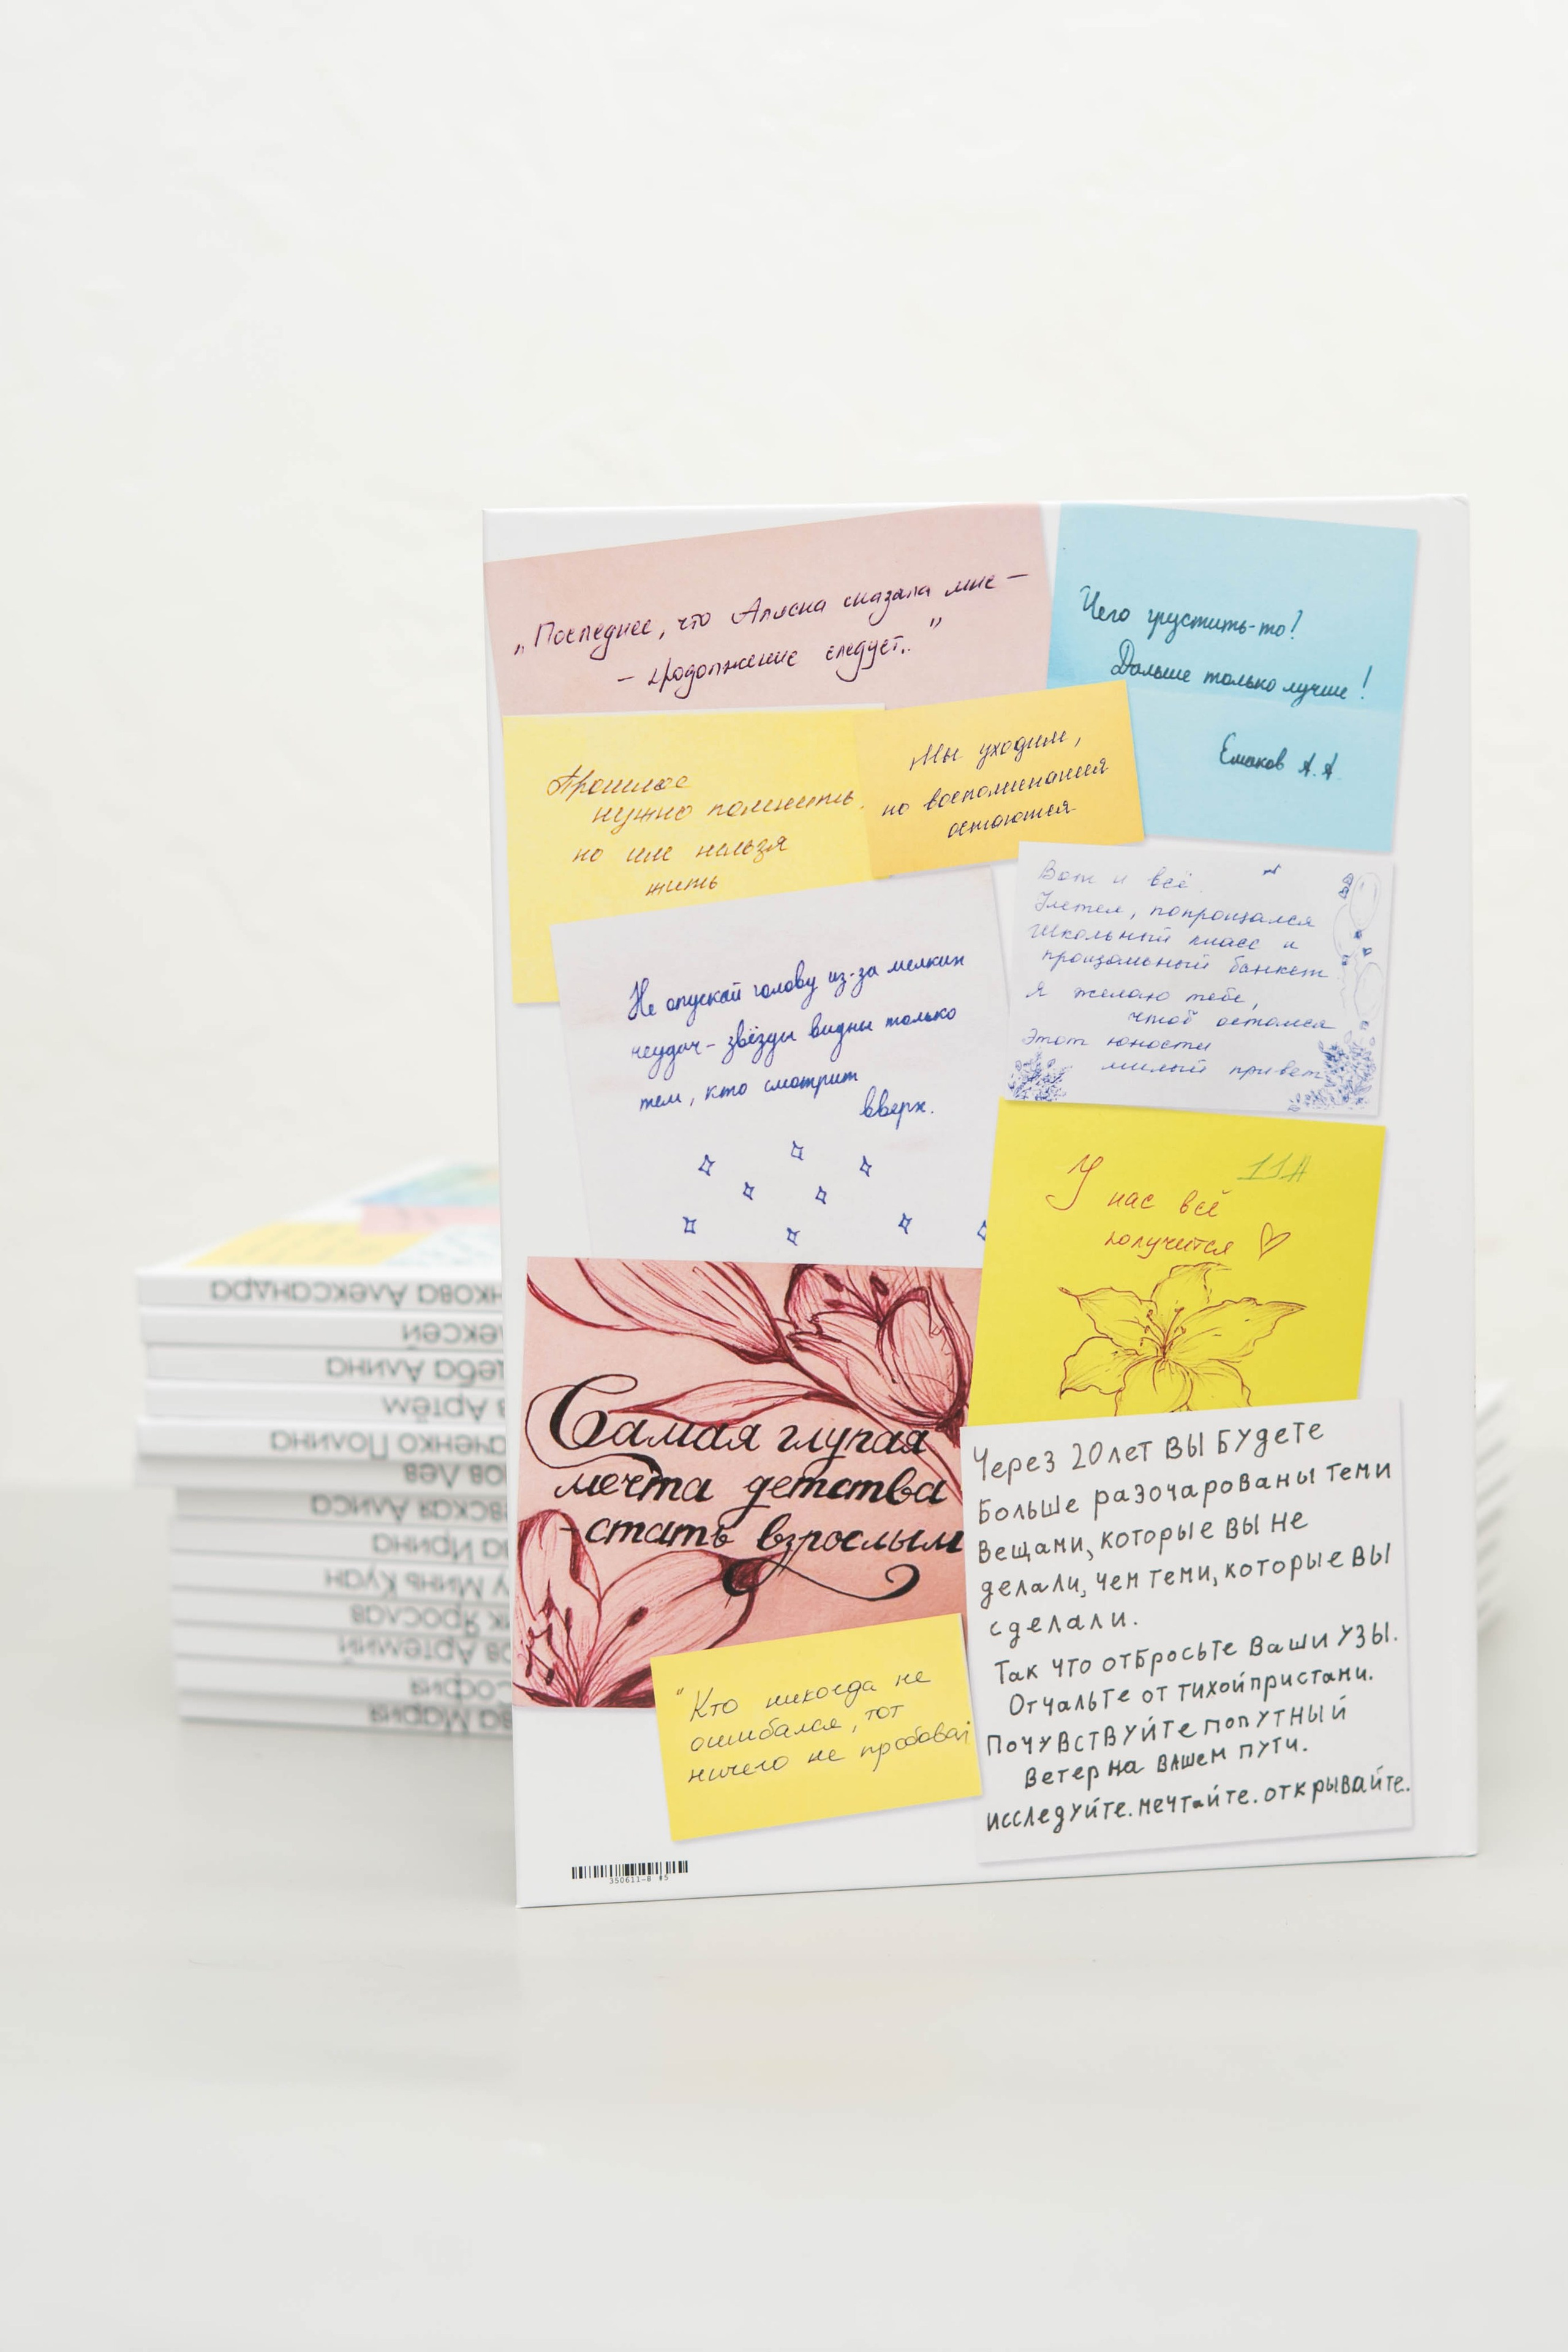 „Последнее, что Аляска сказала мне —
— продолжение следует.."
Чего грустить-то!
Дальше только лучше!
Емаков А.А.
Прошлое
нужно помнить,
но им нельзя
жить
Мы уходим,
но воспоминания
остаются
Вот и всё
Улетел, попрощался
Школьный класс и
прощальный банкет
Я желаю тебе,
чтоб остался
Этот юности
милый привет
Не опускай голову из-за мелких
неудач - звёзды видны только
тем, кто смотрит
вверх.
11А
У нас всё
получится
Самая глупая
мечта детства
-стать взрослым
Через 20 лет вы будете
Больше разочарованы теми
Вещами, которые вы не
делали, чем теми, которые вы
сделали.
Так что отбросьте ваши узы.
Отчальте от тихой пристани.
Почувствуйте попутный
ветер на вашем пути.
исследуйте. мечтайте. открывайте.
"Кто никогда не
ошибался, тот
ничего не пробовал
350611-8 #5
нкова Александра
лексей
деба Алина
в Артём
аченко Полина
ов Лев
вская Алиса
на Ирина
у Минь Куан
ик Ярослав
ов Артемий
София
ва Мария